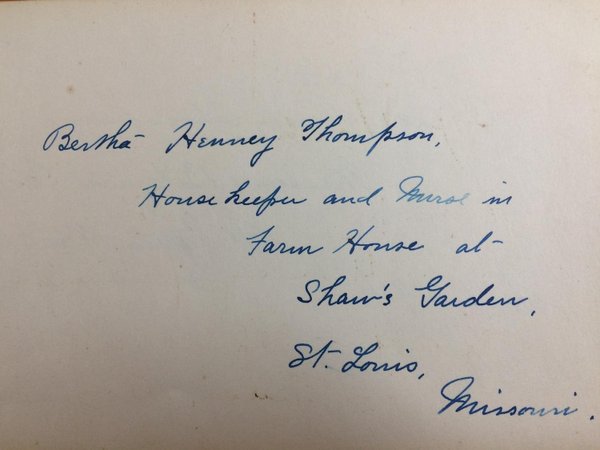 Bertha Henney Thompson,
Housekeeper and Nurse in
Farm House at
Shaw's Garden,
St. Louis,
Missouri.